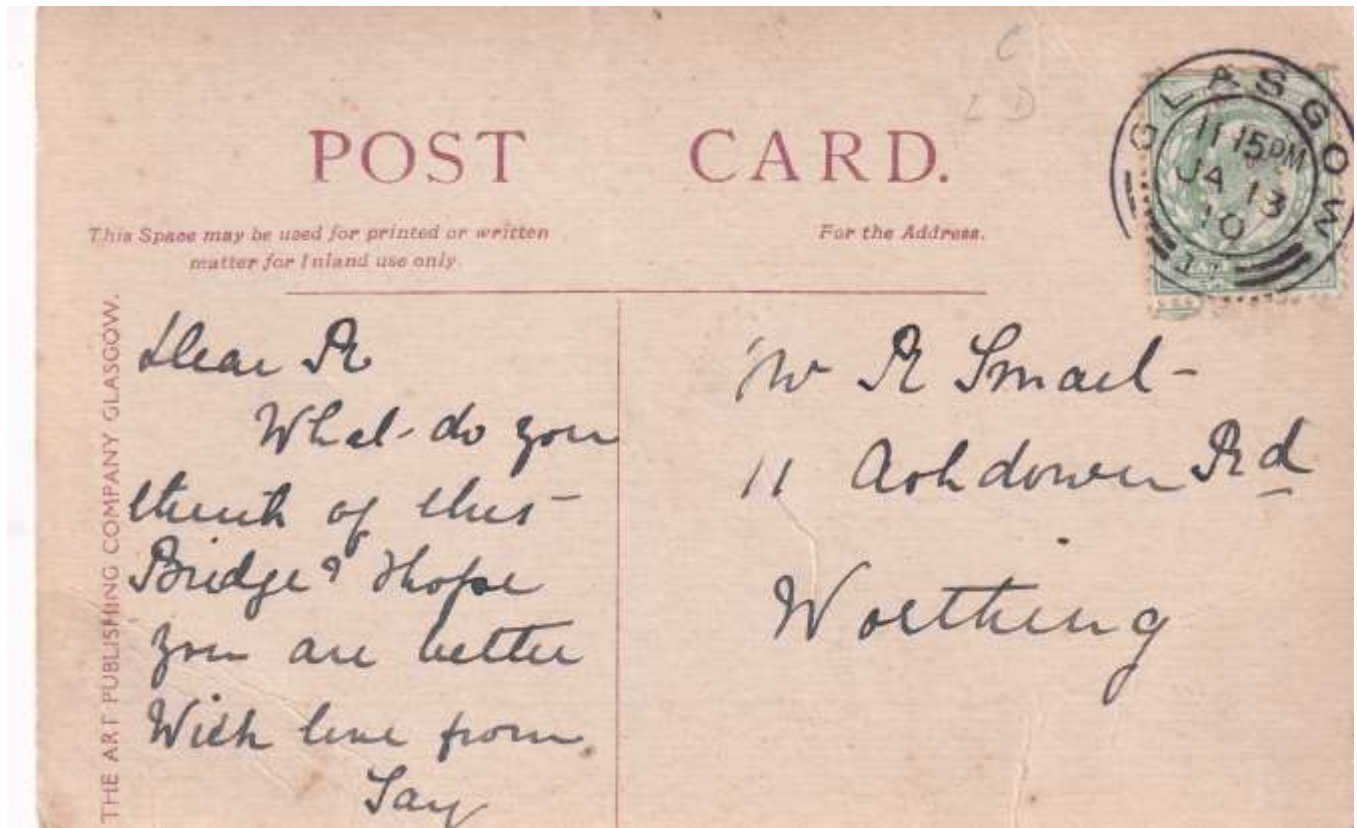 C
L D
POST CARD.
This Space may be used for printed or written
matter for Inland use only.
For the Address.
GLASGOW
11 15 PM
JA 13
10
THE ART PUBLISHING COMPANY GLASGOW.
Dear R
What do you
think of this
Bridge? I hope
you are better
With love from
R Smail
11 Ashdown Rd
Worthing